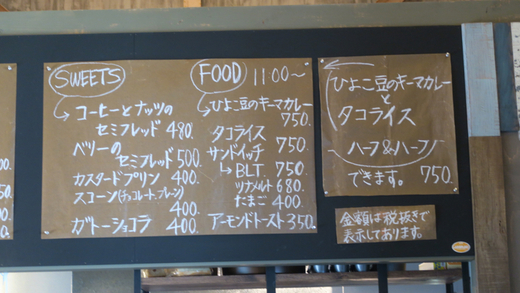 SWEETS
コーヒーとナッツの
セミフレッド 480.
ベリーの
セミフレッド 500.
カスタードプリン 400.
スコーン(チョコレート、プレーン)
400.
ガトーショコラ 400.
FOOD 11:00〜
ひよこ豆のキーマカレー
750.
タコライス
サンドイッチ 750.
BLT. 750
ツナメルト 680.
たまご 400
アーモンドトースト 350.
ひよこ豆のキーマカレー
と
タコライス
ハーフ&ハーフ!
できます。 750.
金額は税抜きで
表示してあります。
00.
00
00